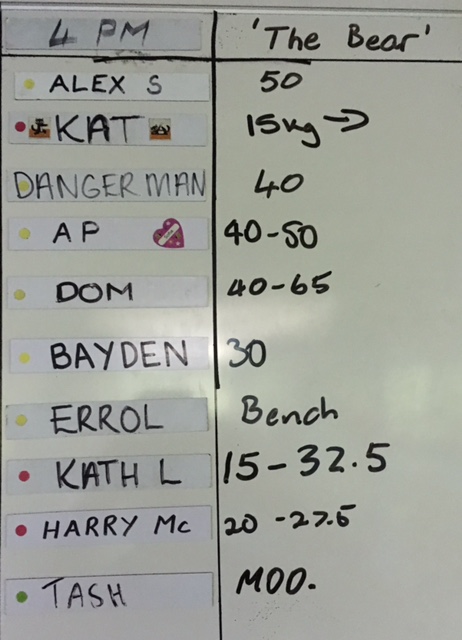 4 PM 'The Bear'
ALEX S 50
KAT 15kg →
DANGERMAN 40
AP 40-50
DOM 40-65
BAYDEN 30
ERROL Bench
KATH L 15-32.5
HARRY Mc 20-27.5
TASH MOO.